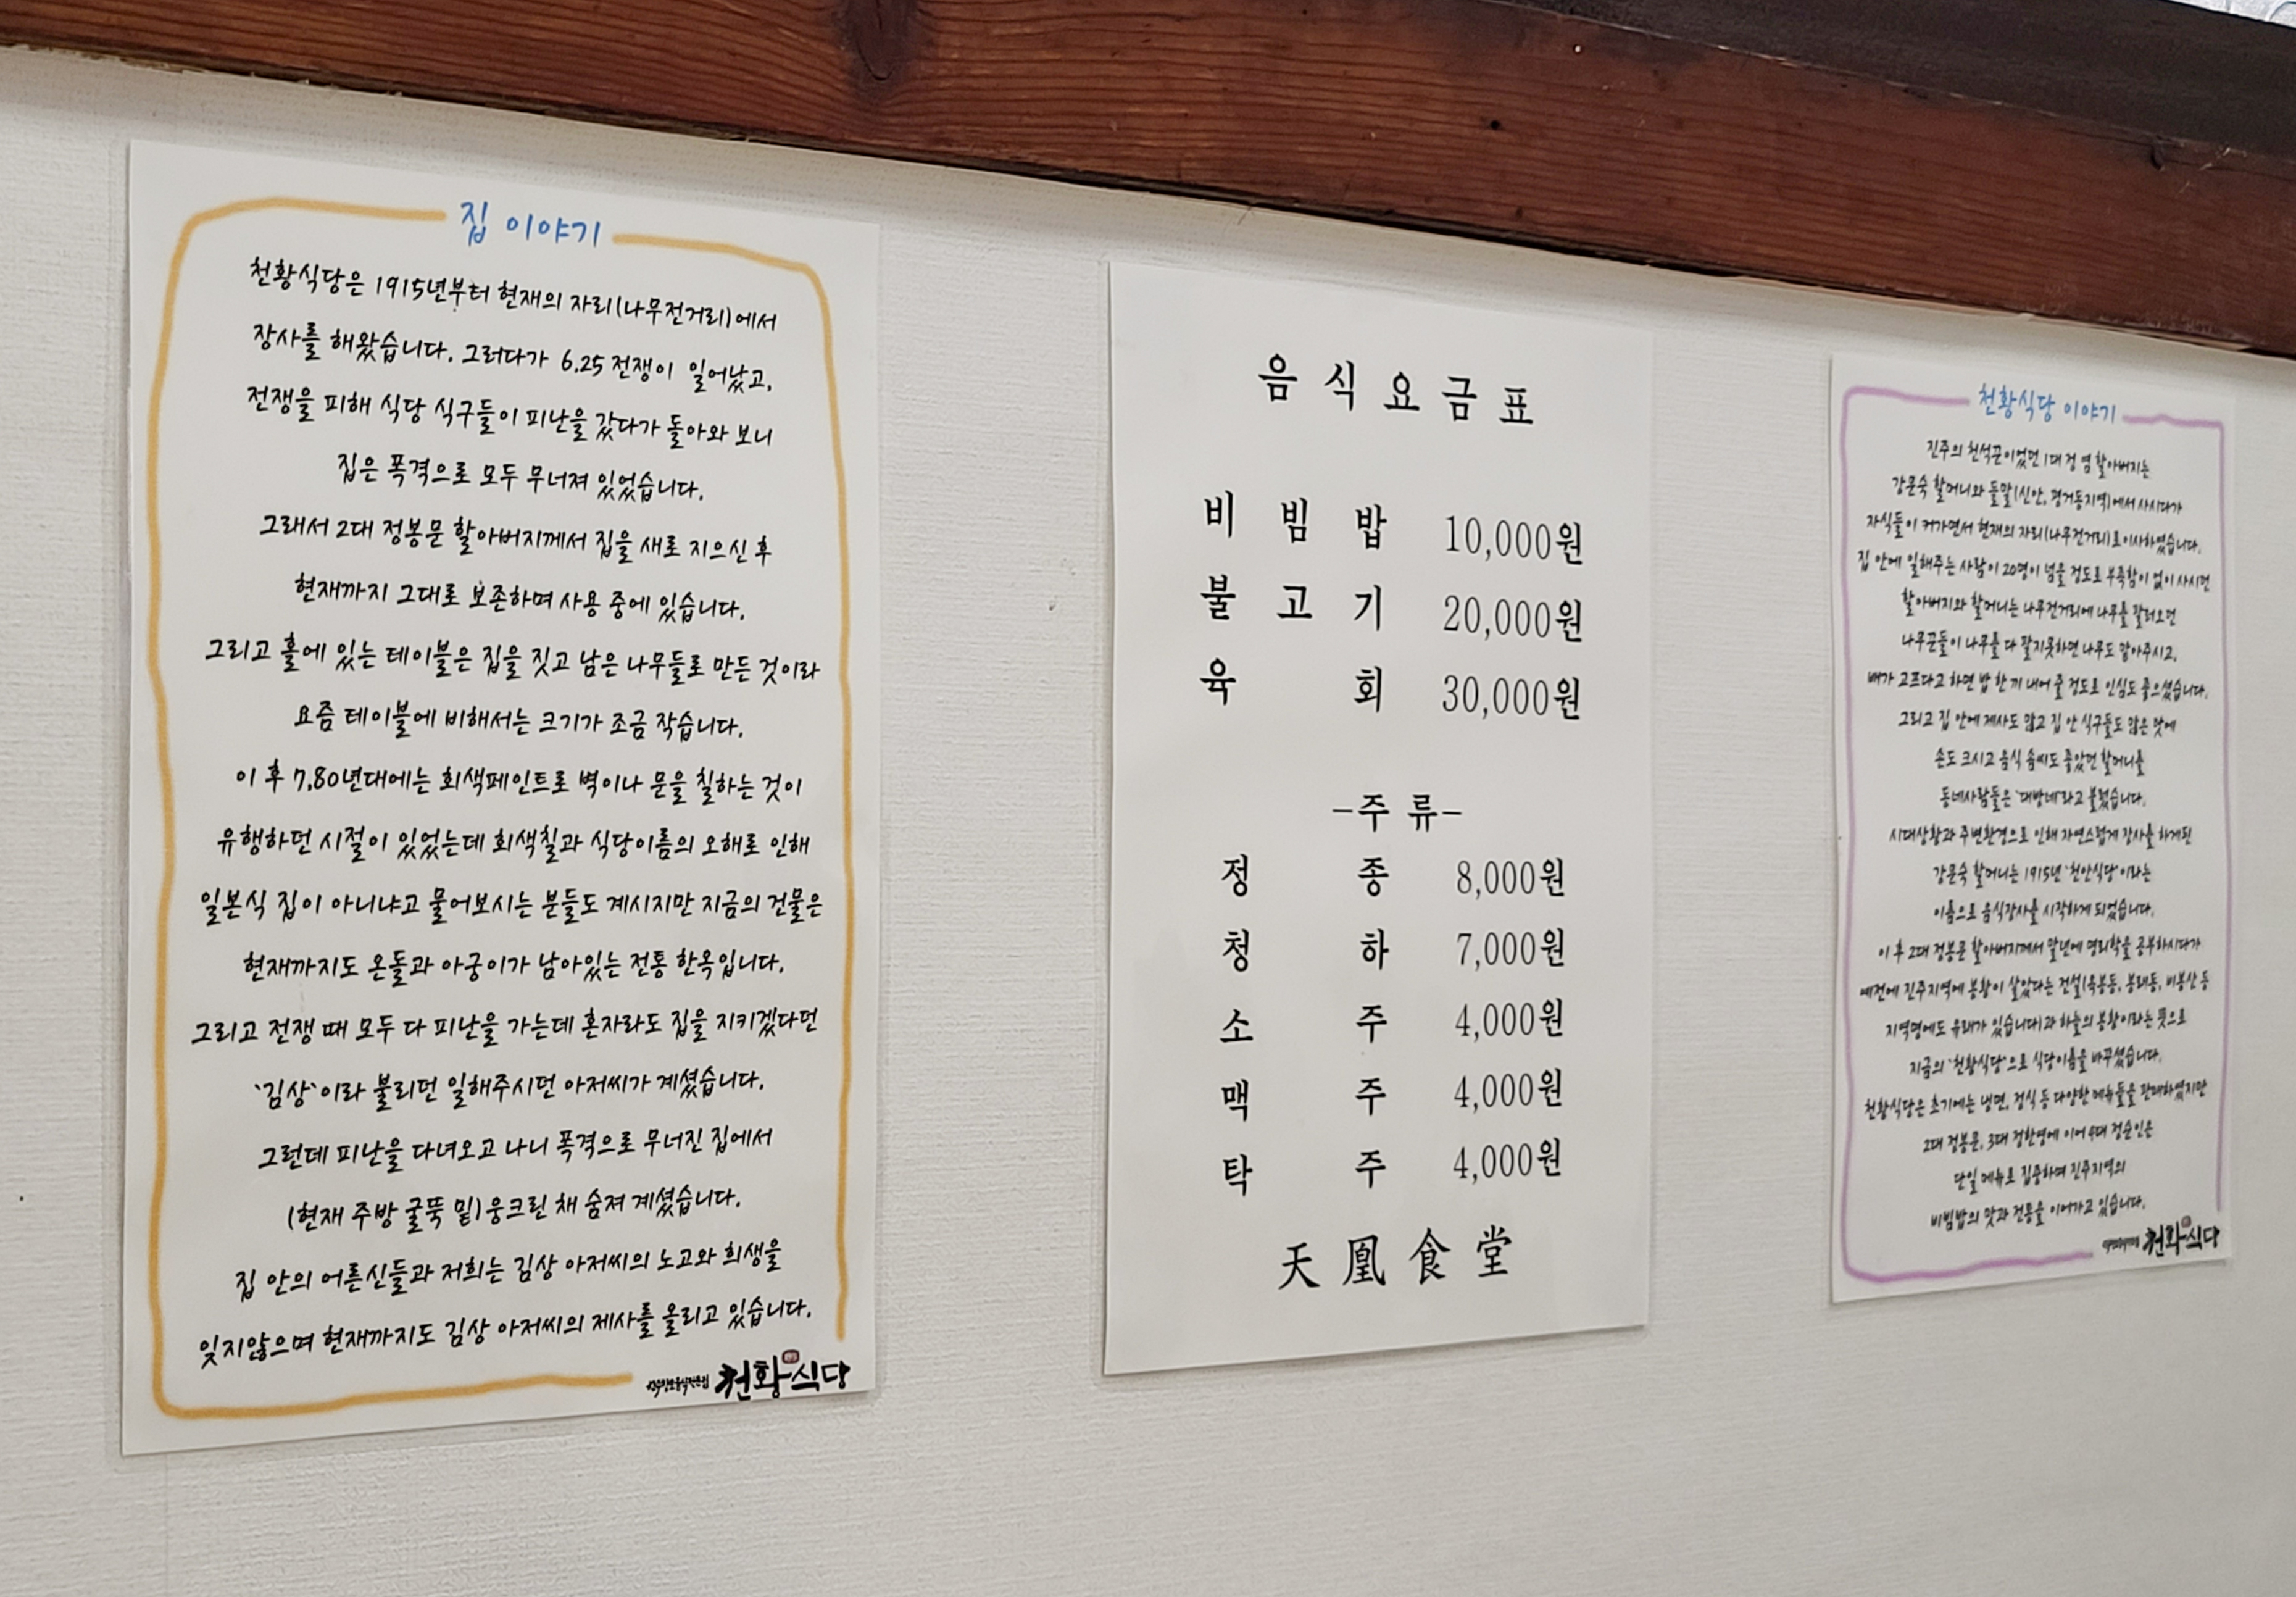 집 이야기
천황식당은 1915년부터 현재의 자리(나무전거리)에서
장사를 해왔습니다. 그러다가 6.25 전쟁이 일어났고,
전쟁을 피해 식당 식구들이 피난을 갔다가 돌아와 보니
집은 폭격으로 모두 무너져 있었습니다.
그래서 2대 정봉문 할아버지께서 집을 새로 지으신 후
현재까지 그대로 보존하며 사용 중에 있습니다.
그리고 홀에 있는 테이블은 집을 짓고 남은 나무들로 만든 것이라
요즘 테이블에 비해서는 크기가 조금 작습니다.
이 후 7,80년대에는 회색페인트로 벽이나 문을 칠하는 것이
유행하던 시절이 있었는데 회색칠과 식당이름의 오해로 인해
일본식 집이 아니냐고 물어보시는 분들도 계시지만 지금의 건물은
현재까지도 온돌과 아궁이가 남아있는 전통 한옥입니다.
그리고 전쟁 때 모두 다 피난을 가는데 혼자라도 집을 지키겠다던
`김상`이라 불리던 일해주시던 아저씨가 계셨습니다.
그런데 피난을 다녀오고 나니 폭격으로 무너진 집에서
(현재 주방 굴뚝 밑)웅크린 채 숨져 계셨습니다.
집 안의 어른신들과 저희는 김상 아저씨의 노고와 희생을
잊지않으며 현재까지도 김상 아저씨의 제사를 올리고 있습니다.
천황식당
음식요금표
비빔밥 10,000원
불고기 20,000원
육회 30,000원
-주류-
정종 8,000원
청하 7,000원
소주 4,000원
맥주 4,000원
탁주 4,000원
天凰食堂
천황식당 이야기
진주의 천석꾼이었던 1대 정 염 할아버지는
강문숙 할머니와 들말(신안, 평거동지역)에서 사시다가
자식들이 커가면서 현재의 자리(나무전거리)로 이사하였습니다.
집 안에 일해주는 사람이 20명이 넘을 정도로 부족함이 없이 사시던
할아버지와 할머니는 나무전거리에 나무를 팔러오던
나무꾼들이 나무를 다 팔지못하면 나무도 맡아주시고,
배가 고프다고 하면 밥 한 끼 내어 줄 정도로 인심도 좋으셨습니다.
그리고 집 안에 제사도 많고 집 안 식구들도 많은 탓에
손도 크시고 음식 솜씨도 좋았던 할머니를
동네사람들은 `대방네`라고 불렀습니다.
시대상황과 주변환경으로 인해 자연스럽게 장사를 하게된
강문숙 할머니는 1915년 `천안식당`이라는
이름으로 음식장사를 시작하게 되었습니다.
이 후 2대 정봉문 할아버지께서 말년에 명리학을 공부하시다가
예전에 진주지역에 봉황이 살았다는 전설(옥봉동, 봉래동, 비봉산 등
지역명에도 유래가 있습니다)과 하늘의 봉황이라는 뜻으로
지금의 `천황식당`으로 식당이름을 바꾸셨습니다.
천황식당은 초기에는 냉면, 정식 등 다양한 메뉴들을 판매하였지만
2대 정봉문, 3대 정한영에 이어 4대 정순인은
단일 메뉴로 집중하며 진주지역의
비빔밥의 맛과 전통을 이어가고 있습니다.
천황식당